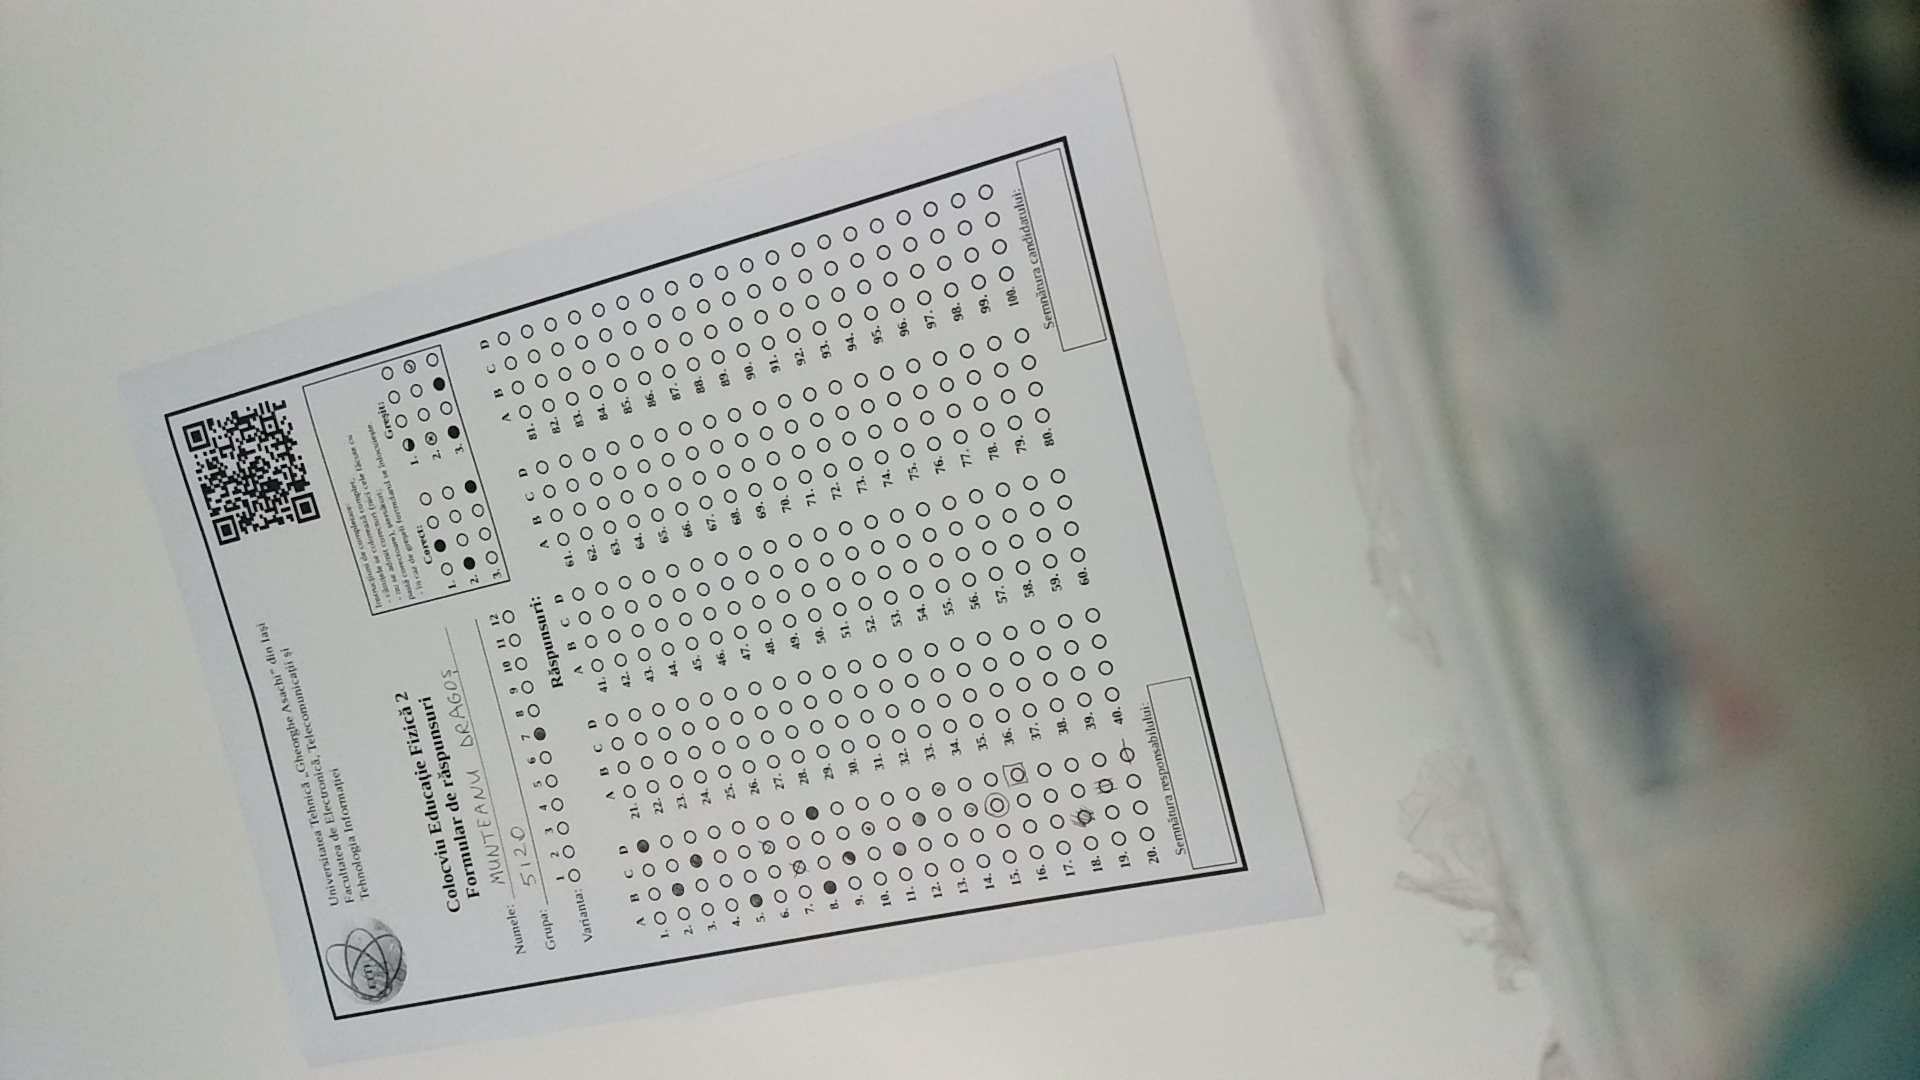 Universitatea Tehnică „Gheorghe Asachi” din Iași
Facultatea de Electronică, Telecomunicații și
Tehnologia Informației
ETTI
Colocviu Educație Fizică 2
Formular de răspunsuri
Numele: MUNTEANU DRAGOȘ
Grupa: 5120
Varianta: 1 2 3 4 5 6 7 8 9 10 11 12
Instrucțiuni de completare:
- căsuțele se colorează complet;
- nu se admit corecturi (nici cele făcute cu
pastă corectoare), ștersături;
- în caz de greșeli formularul se înlocuiește.
Corect:
1.
2.
3.
Greșit:
1.
2.
3.
Răspunsuri:
A B C D
1.
2.
3.
4.
5.
6.
7.
8.
9.
10.
11.
12.
13.
14.
15.
16.
17.
18.
19.
20.
A B C D
21.
22.
23.
24.
25.
26.
27.
28.
29.
30.
31.
32.
33.
34.
35.
36.
37.
38.
39.
40.
A B C D
41.
42.
43.
44.
45.
46.
47.
48.
49.
50.
51.
52.
53.
54.
55.
56.
57.
58.
59.
60.
A B C D
61.
62.
63.
64.
65.
66.
67.
68.
69.
70.
71.
72.
73.
74.
75.
76.
77.
78.
79.
80.
A B C D
81.
82.
83.
84.
85.
86.
87.
88.
89.
90.
91.
92.
93.
94.
95.
96.
97.
98.
99.
100.
Semnătura responsabilului:
Semnătura candidatului: